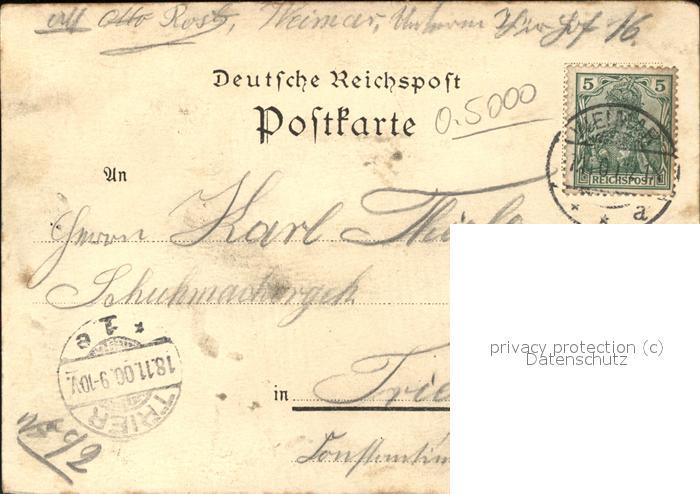 Otto Rost, Weimar, Unterm 16.
Deutsche Reichspost
Postkarte
0.5000
5 5
REICHSPOST
WEIMAR
a
An
Herrn Karl
Schuhmachergeh.
1 c
18.11.00.9-10V.
TRIER
in Trie
Constantin
privacy protection (c)
Datenschutz